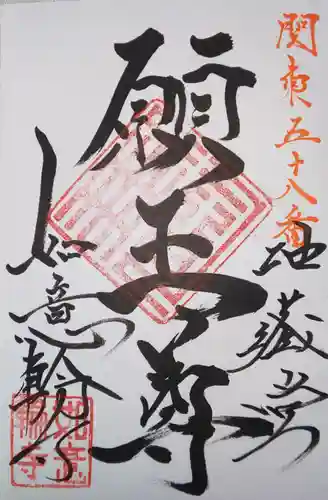 関東五十八番
地蔵堂
願王尊
如意輪寺